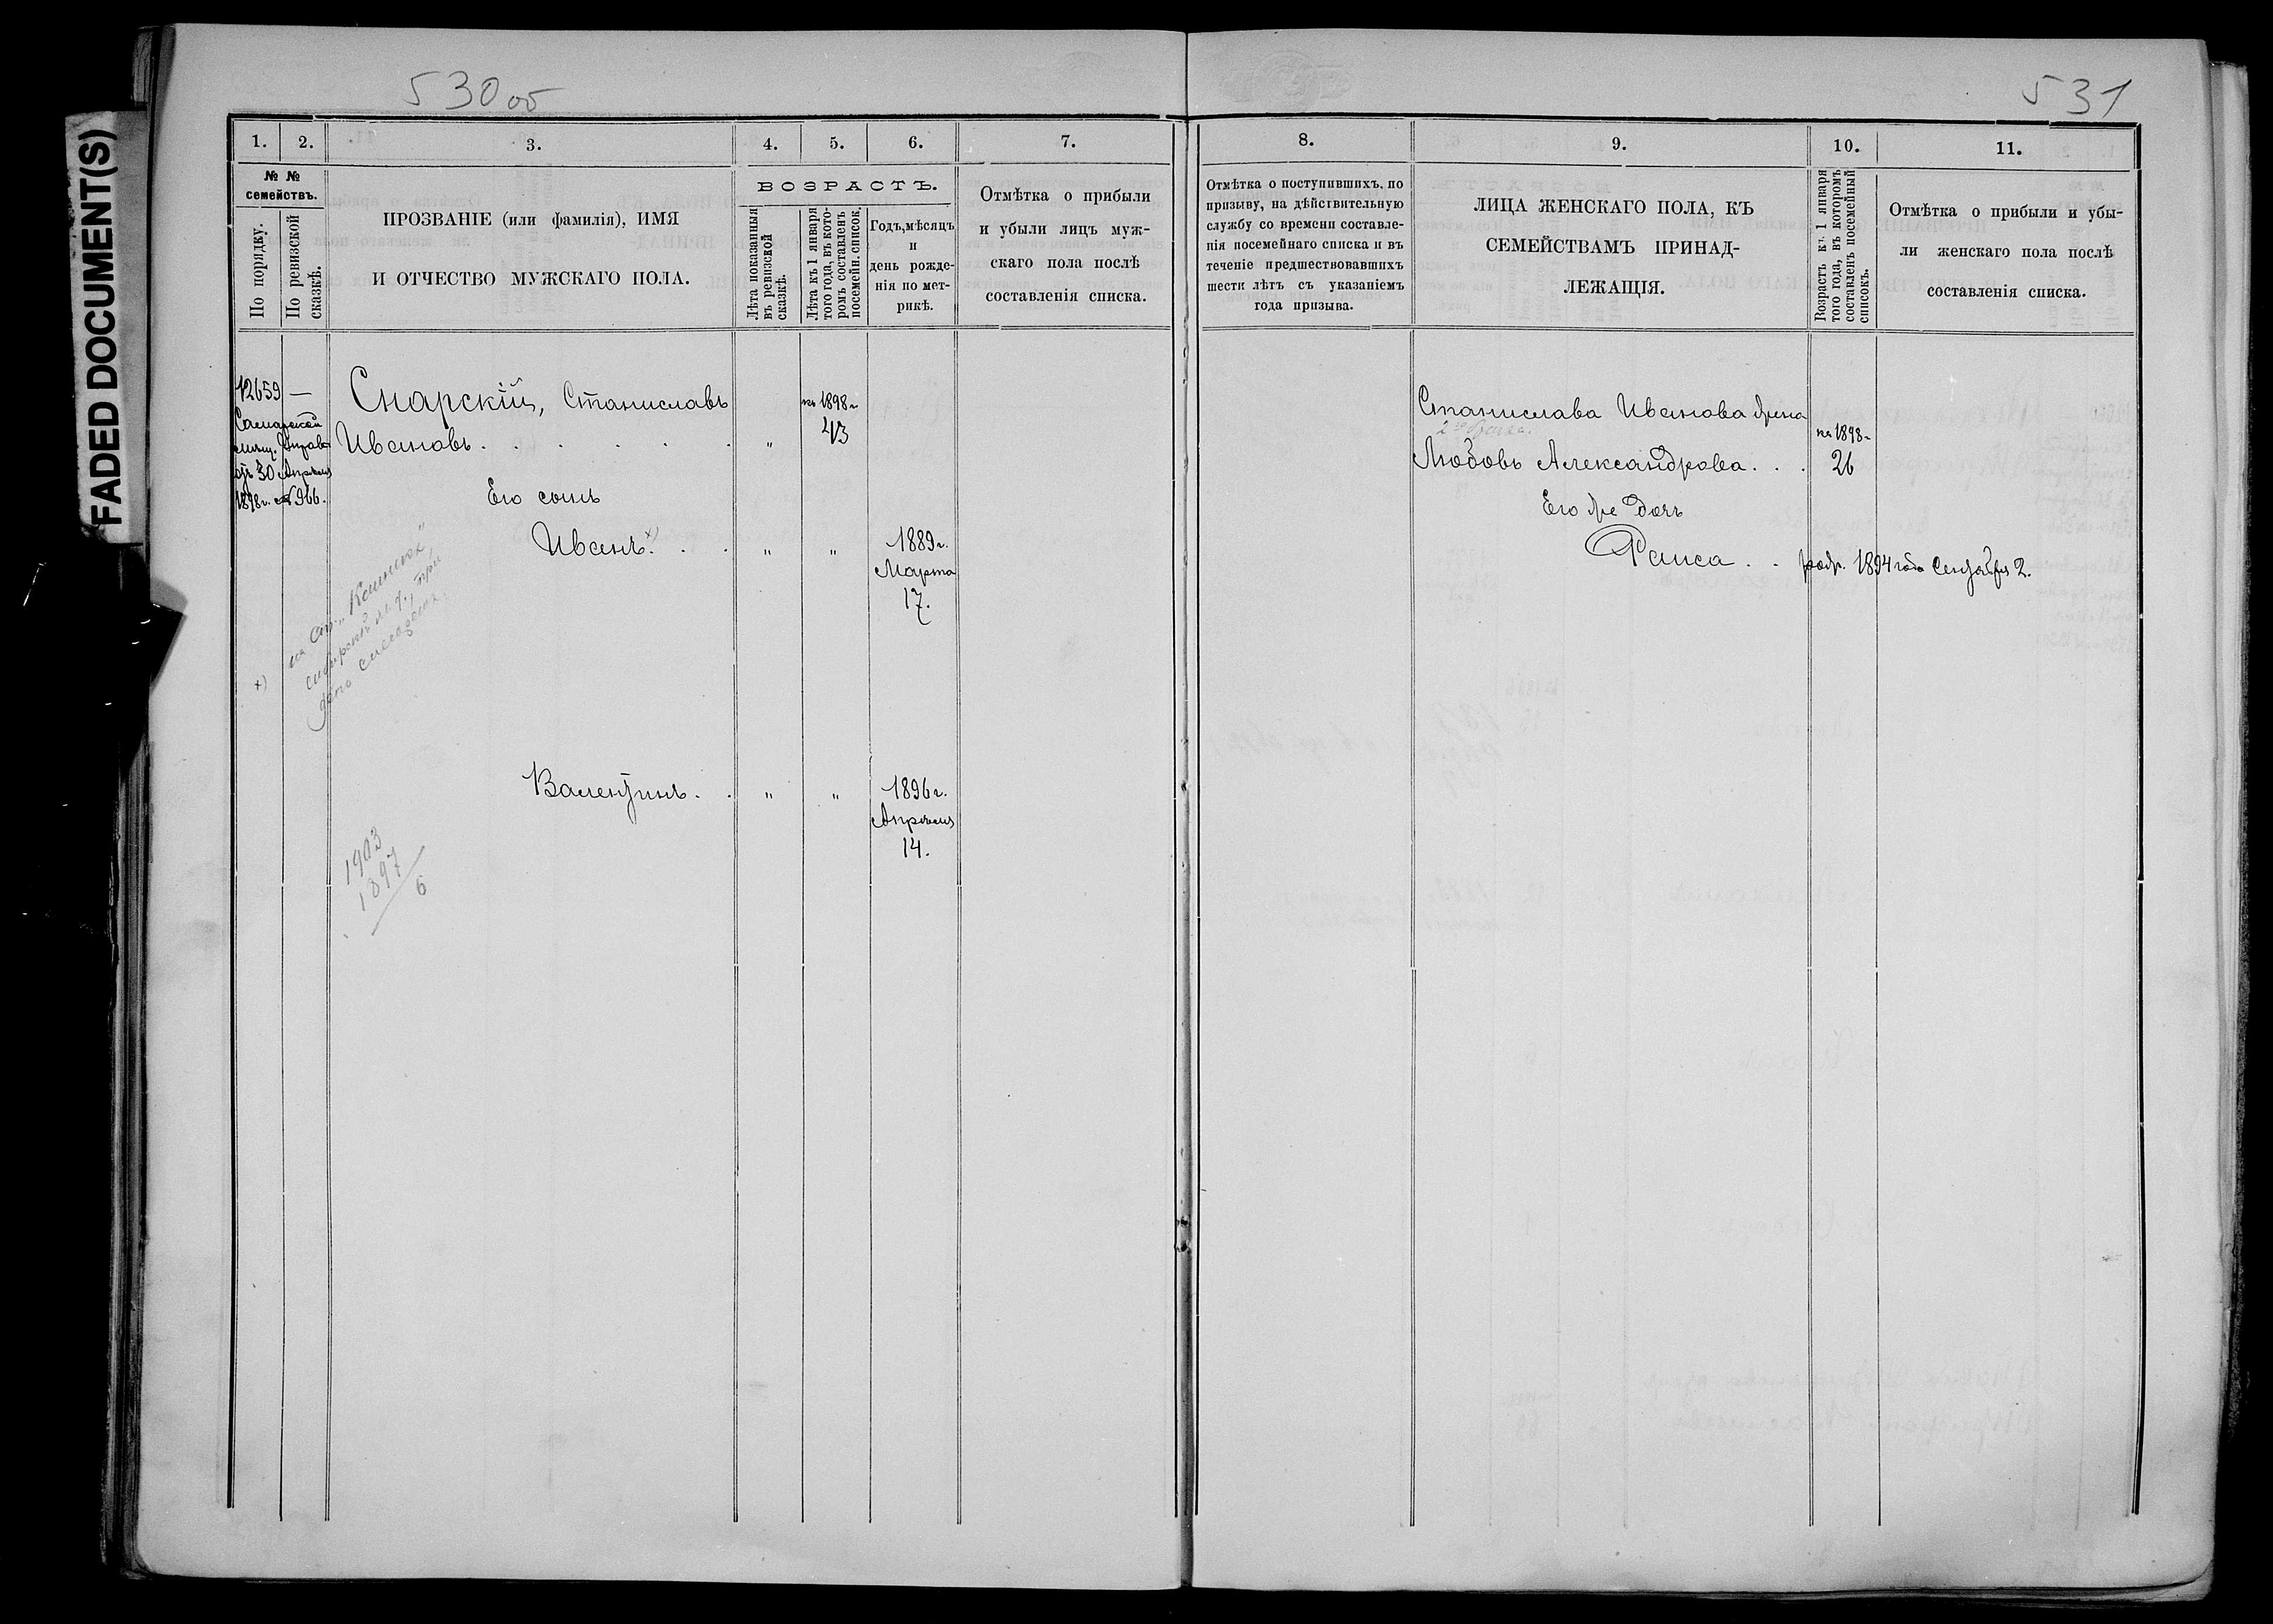 FADED DOCUMENT(S)
530 об
531
1. 2. 3. 4. 5. 6. 7.
№ №
семействъ.
По порядку.
По ревизской
сказкѣ.
ПРОЗВАНІЕ (или фамилія), ИМЯ
И ОТЧЕСТВО МУЖСКАГО ПОЛА.
ВОЗРАСТЪ.
Лѣта показанныя
въ ревизской
сказкѣ.
Лѣта къ 1 января
того года, въ кото-
ромъ составленъ
посемейн. список.
Годъ, мѣсяцъ
и
день рожде-
нія по мет-
рикѣ.
Отмѣтка о прибыли
и убыли лицъ муж-
скаго пола послѣ
составленія списка.
8. 9. 10. 11.
Отмѣтка о поступившихъ, по
призыву, на дѣйствительную
службу со времени составле-
нія посемейнаго списка и въ
теченіе предшествовавшихъ
шести лѣтъ съ указаніемъ
года призыва.
ЛИЦА ЖЕНСКАГО ПОЛА, КЪ
СЕМЕЙСТВАМЪ ПРИНАД-
ЛЕЖАЩІЯ.
Возрастъ къ 1 января
того года, въ которомъ
составленъ посемейный
списокъ.
Отмѣтка о прибыли и убы-
ли женскаго пола послѣ
составленія списка.
12659 —
Самарской
мѣщ. Управы
отъ 30 Апрѣля
1898 г. № 966.
Снарскій, Станиславъ
Ивановъ . . . . . „
къ 1898 г
43
Его сынъ
Иванъ +) . . „ „
1889 г.
Марта
17.
+)
на ст. „
при
Валентинъ . . „ „
1896 г.
Апрѣля
14.
1903
1897
6
Станислава Иванова жена
2го брака.
Любовь Александрова . . .
къ 1898 г
26
Его же дочь
Раиса . . родр. 1894 года Сентября 2.